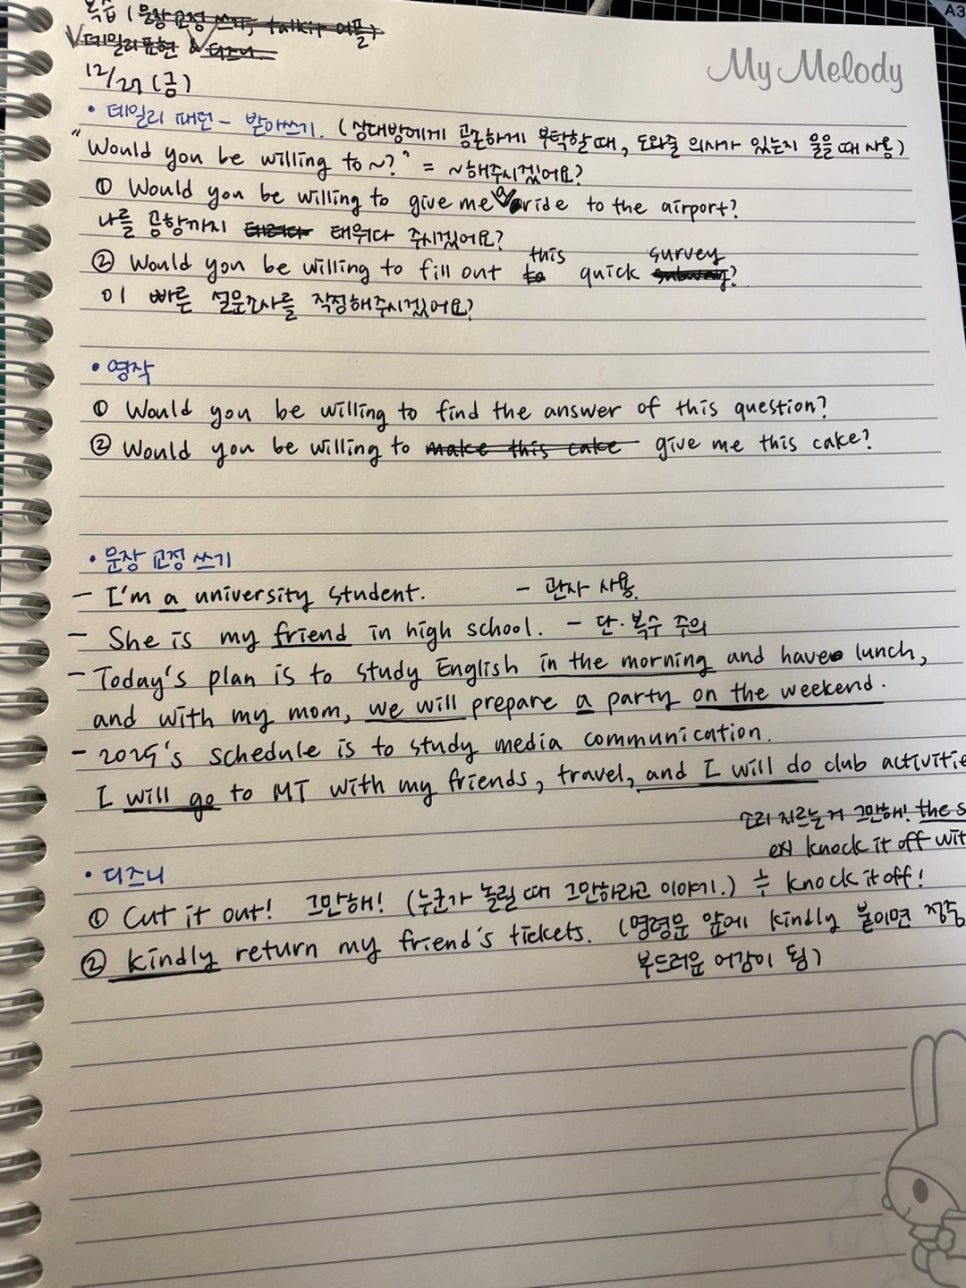 복습 (문장 교정 쓰기, talkit 어플)
√데일리표현 & √디즈니
12/27 (금)
My Melody
A3
• 데일리 패턴 - 받아쓰기. (상대방에게 공손하게 부탁할 때, 도와줄 의사가 있는지 물을 때 사용)
"Would you be willing to ~?" = ~해주시겠어요?
① Would you be willing to give me a ride to the airport?
나를 공항까지 태워다 주시겠어요?
② Would you be willing to fill out this quick survey?
이 빠른 설문조사를 작성해주시겠어요?
• 영작
① Would you be willing to find the answer of this question?
② Would you be willing to make this cake give me this cake?
• 문장 교정 쓰기
- I'm a university student. - 관사 사용.
- She is my friend in high school. - 단·복수 주의
- Today's plan is to study English in the morning and have lunch,
and with my mom, we will prepare a party on the weekend.
- 2025's schedule is to study media communication.
I will go to MT with my friends, travel, and I will do club activitie
소리 지르는거 그만해! the s
ex) knock it off wit
• 디즈니
① Cut it out! 그만해! (누군가 놀릴 때 그만하라고 이야기.) ≒ knock it off!
② kindly return my friend's tickets. (명령문 앞에 kindly 붙이면
부드러운 어감이 됨)